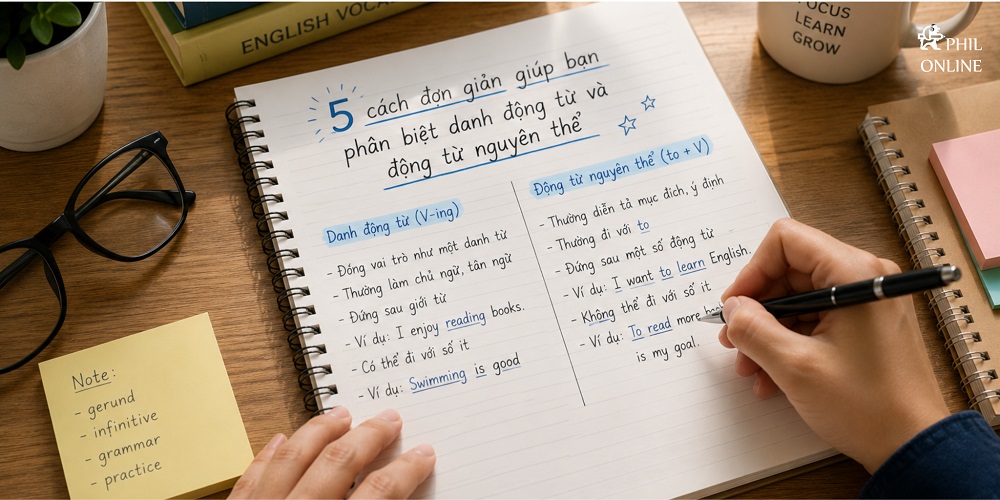 ENGLISH
FOCUS
LEARN
GROW
PHIL
ONLINE
5 cách đơn giản giúp bạn
phân biệt danh động từ và
động từ nguyên thể
Danh động từ (V-ing)
- Đóng vai trò như một danh từ
- Thường làm chủ ngữ, tân ngữ
- Đứng sau giới từ
- Ví dụ: I enjoy reading books.
- Có thể đi với số ít
- Ví dụ: Swimming is good
Động từ nguyên thể (to + V)
- Thường diễn tả mục đích, ý định
- Thường đi với to
- Đứng sau một số động từ
- Ví dụ: I want to learn English.
- Không thể đi với số ít
- Ví dụ: To read more
is my goal.
Note:
- gerund
- infinitive
- grammar
- practice